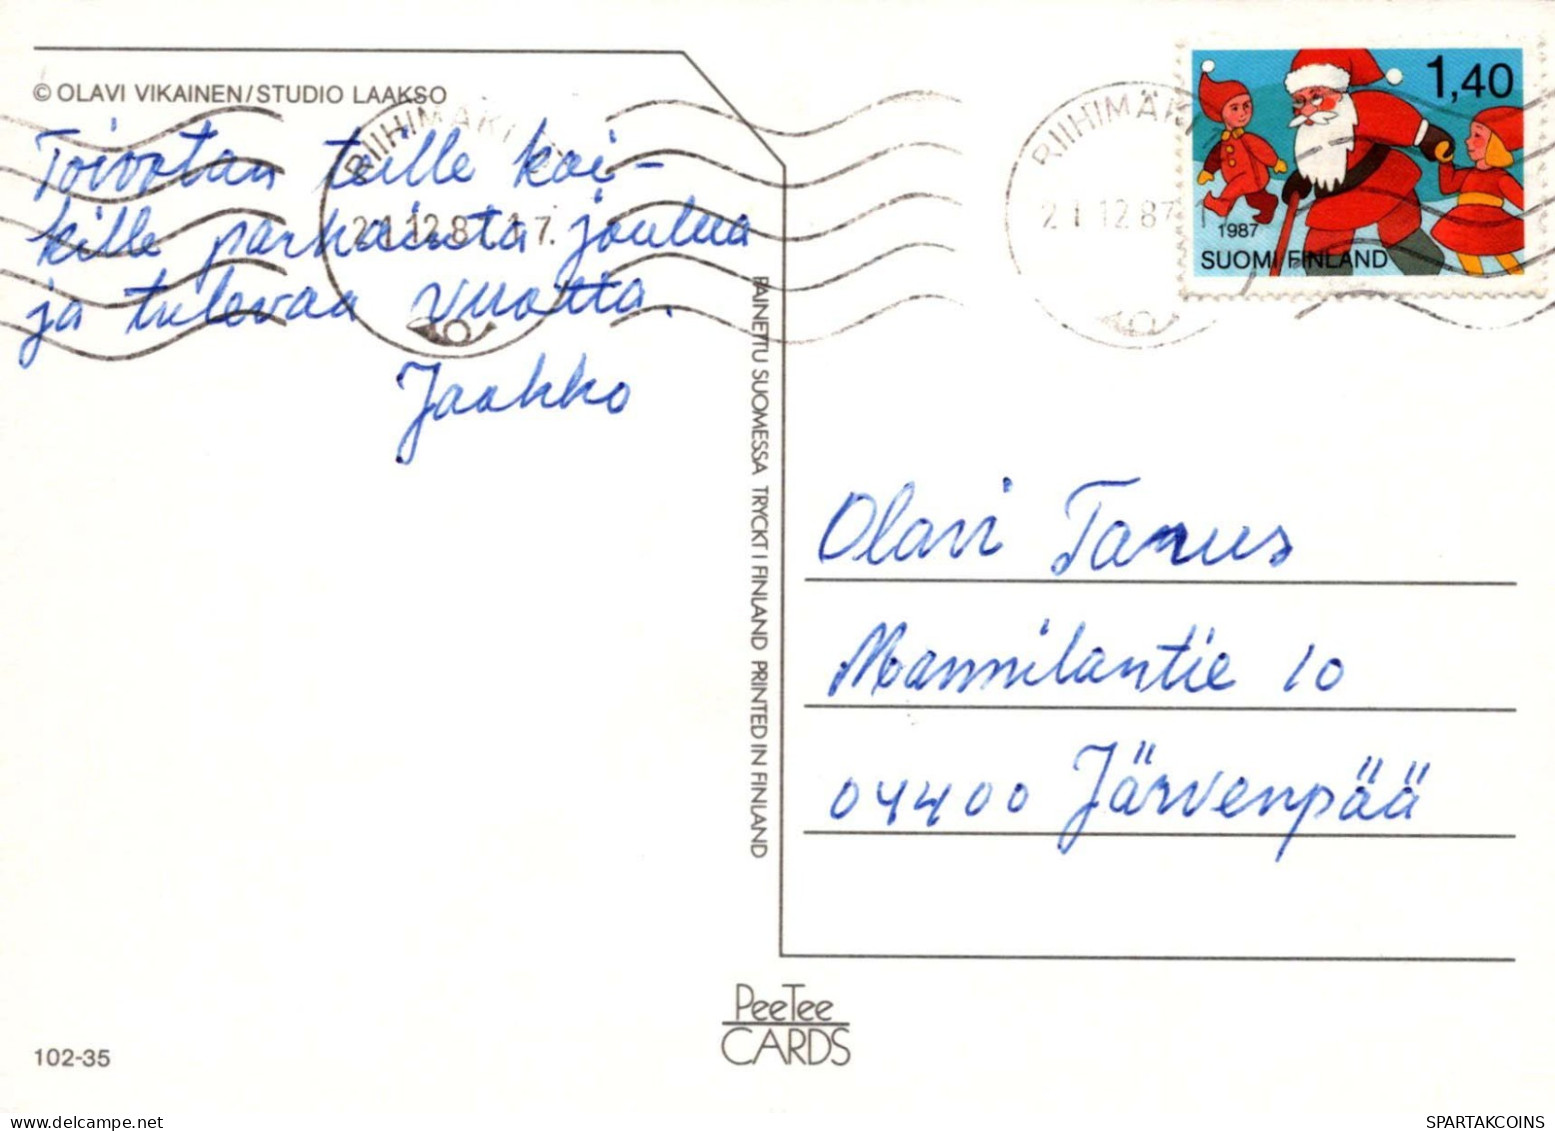 © OLAVI VIKAINEN/STUDIO LAAKSO
Toivotan teille kai-
kille parhainta joulua
ja tulevaa vuotta.
Jaakko
RIIHIMÄKI
21.12.87 17.
RIIHIMÄKI
21 12.87
1,40
1987
SUOMI FINLAND
PAINETTU SUOMESSA TRYCKT I FINLAND PRINTED IN FINLAND
Olavi Tanus
Mannilantie 10
04400 Järvenpää
PeeTee
CARDS
102-35
SPARTAKCOINS